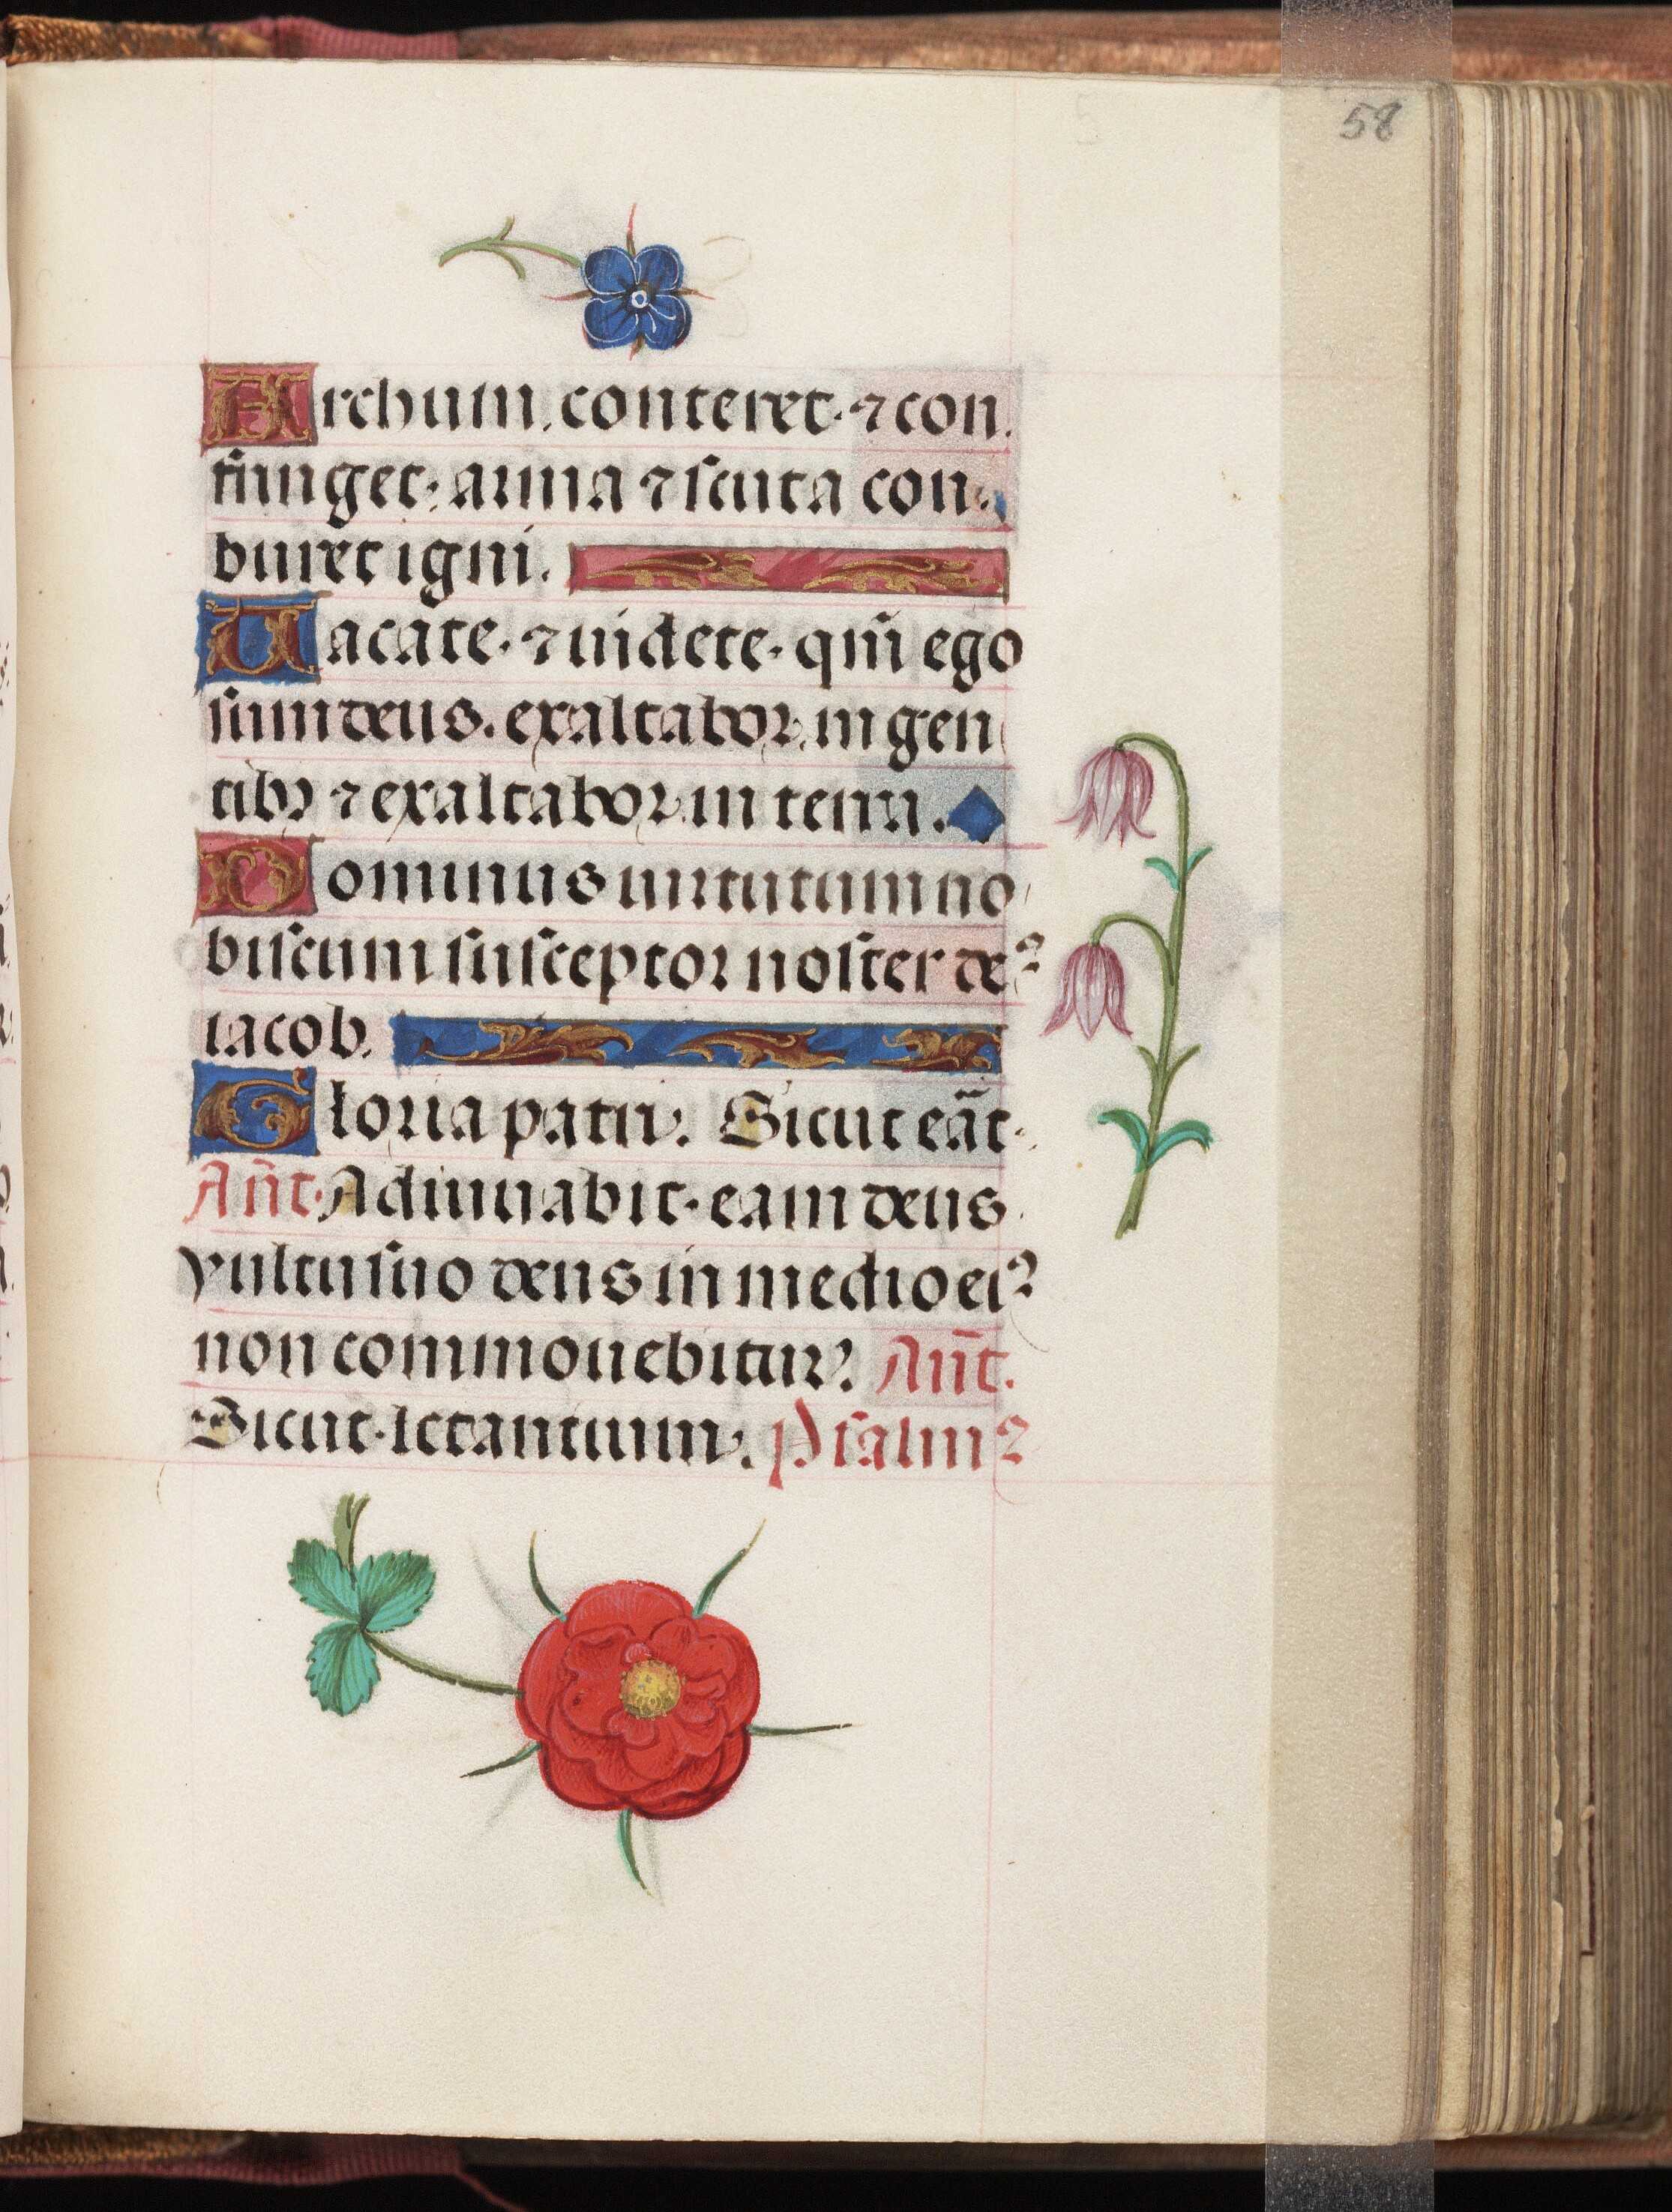 58
Archum conteret. ⁊ con
fringet. arma ⁊ scuta con
buret igni.
Uacate. ⁊ uidete. qm̄ ego
sum deus. exaltabor in gen
tibꝫ ⁊ exaltabor in terra.
Dominus uirtutum no
biscum susceptor noster deꝰ
iacob.
Gloria patri. Sicut eāt.
An̄t. Adiuuabit. eam deus
vultu suo deus in medio eiꝰ
non commouebitur. An̄t.
Sicut. letantium. psalmꝰ